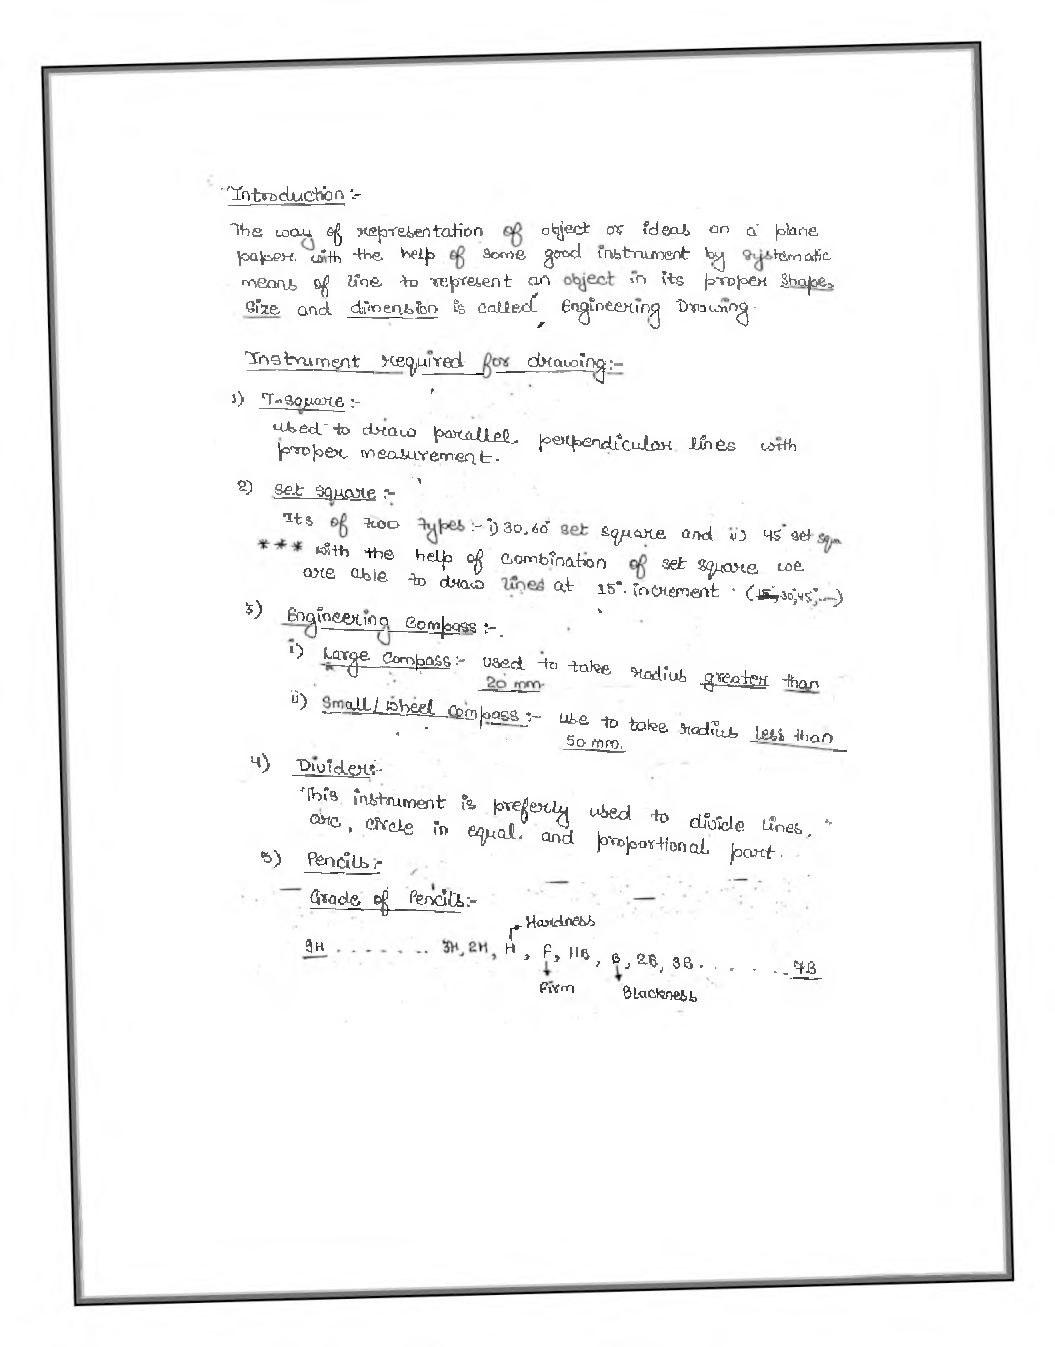 Introduction :-
The way of representation of object or ideas on a plane
paper with the help of some good instrument by systematic
means of line to represent an object in its proper shape,
size and dimension is called Engineering Drawing.
Instrument required for drawing:-
1) T-square :-
used to draw parallel, perpendicular lines with
proper measurement.
2) Set square :-
Its of two types :- i) 30,60° set square and ii) 45° set
*** with the help of combination of set square we
are able to draw lines at 15° increment. (15°,30°,45°,...)
3) Engineering Compass :-
i) Large Compass :- used to take radius greater than
20 mm.
ii) Small / wheel compass :- use to take radius less than
50 mm.
4) Divider:-
This instrument is preferly used to divide lines,
arc, circle in equal and proportional part.
5) Pencils :-
Grade of Pencils:-
Hardness
9H ....... 3H, 2H, H, F, HB, B, 2B, 3B ....... 7B
Firm Blackness